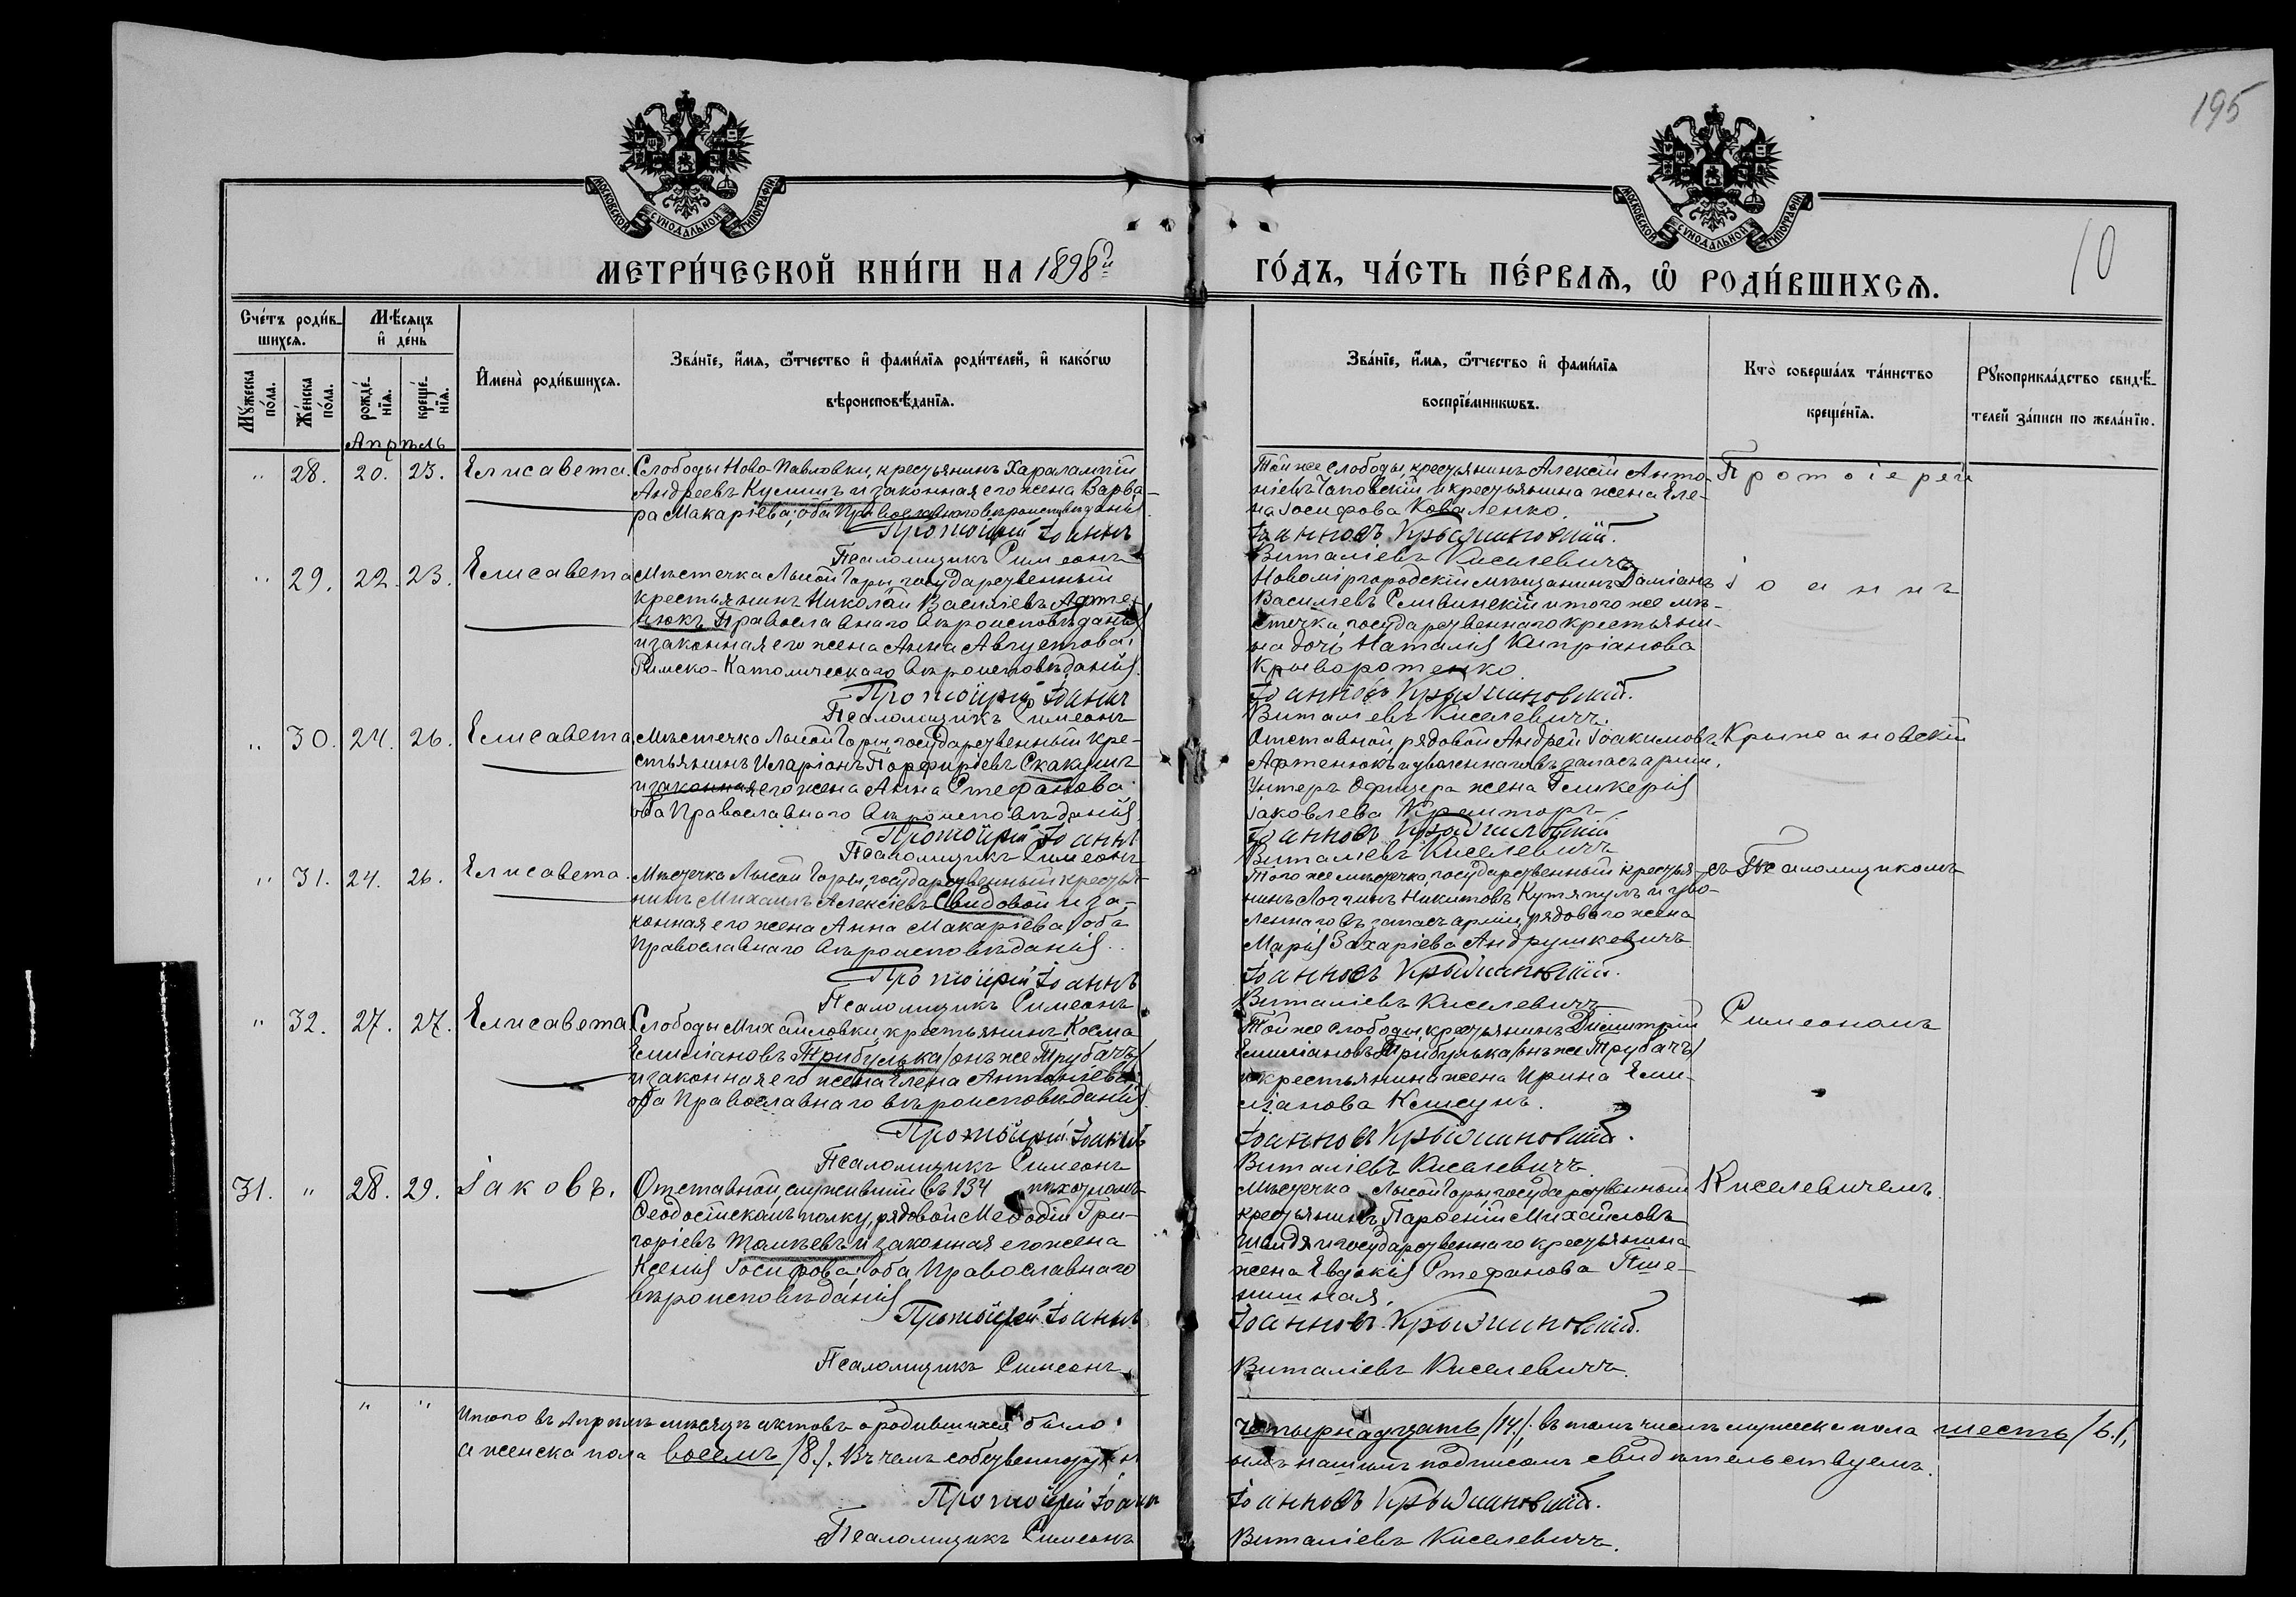 195
10
МОСКОВСКОЙ СУНОДАЛЬНОЙ ТИПОГРАФІИ
МОСКОВСКОЙ СУНОДАЛЬНОЙ ТИПОГРАФІИ
МЕТРИ́ЧЕСКОЙ КНИ́ГИ НА 1898й
ГО́ДЪ, ЧА́СТЬ ПЕ́РВАѦ, Ѡ РОДИ́ВШИХСѦ.
Сче́тъ роди́в-
шихсѧ.
Мѣ́сѧцъ
и҆ де́нь
Мꙋ́жеска
по́ла.
Же́нска
по́ла.
рожде́-
нїѧ.
креще́-
нїѧ.
И҆мена̀ роди́вшихсѧ.
Зва́нїе, и҆́мѧ, ѻ҆́тчество и҆ фами́лїѧ роди́телей, и҆ како́гѡ
вѣроисповѣ́данїѧ.
Зва́нїе, и҆́мѧ, ѻ҆́тчество и҆ фами́лїѧ
воспрїе́мникѡвъ.
Кто̀ соверша́лъ та́инство
креще́нїѧ.
Рꙋкоприкла́дство свидѣ́-
телей за́писи по жела́нїю.
Апрѣль
" 28. 20. 23. Елисавета.
Слободы Ново-Павловки, крестьянинъ Харалампій
Андреевъ и законная его жена Варва-
ра Макаріева; оба Православнаго вѣроисповѣданія
Протоіерей Іоаннъ
Псаломщикъ Симеонъ
Той же слободы, крестьянинъ Алексій Анто-
ніевъ Чаповскій и крестьянина жена Еле-
на Іосифова Коваленко.
Іоанновъ Крыжановскій.
Виталіевъ Киселевичъ
Протоіерей
" 29. 22. 23. Елисавета
Мѣстечка Лысой Горы, государственный
крестьянинъ Николай Василіевъ Афте-
нюкъ Православнаго вѣроисповѣданія
и законная его жена Анна Августова;
Римско-Католическаго вѣроисповѣданія.
Протоіерей Іоаннъ
Псаломщикъ Симеонъ
Новомиргородскій мѣщанинъ Даміанъ
Василіевъ Сливинскій и того же мѣ-
стечка, государственнаго крестьяни-
на дочь Наталія Кипріанова
Криворотенко.
Іоанновъ Крыжановскій.
Виталіевъ Киселевичъ.
Іоаннъ
" 30. 24. 26. Елисавета
Мѣстечка Лысой Горы, государственный кре-
стьянинъ Иларіонъ Порфиріевъ Скакунъ
и законная его жена Анна Стефанова
оба Православнаго вѣроисповѣданія
Протоіерей Іоаннъ
Псаломщикъ Симеонъ
Отставной, рядовой Андрей Іоакимовъ
Афтенюкъ и уволеннаго въ запасъ арміи,
Унтеръ Офицера жена Гликерія
Іаковлева
Іоанновъ Крыжановскій
Виталіевъ Киселевичъ
Крыжановскій
" 31. 24. 26. Елисавета.
Мѣстечка Лысой Горы, государственный крестья-
нинъ Михаилъ Алексіевъ Свидовой и за-
конная его жена Анна Макаріева оба
Православнаго вѣроисповѣданія.
Протоіерей Іоаннъ
Псаломщикъ Симеонъ
Того же мѣстечка, государственный крестья-
нинъ Логгинъ Никитовъ и уво-
леннаго въ запасъ арміи рядового жена
Марія Захаріева Андрушкевичъ
Іоанновъ Крыжановскій.
Виталіевъ Киселевичъ
съ Псаломщикомъ
" 32. 27. 27. Елисавета.
Слободы Михайловки, крестьянинъ Косма
Емиліановъ Трибулька /онъ же Трубачъ/
и законная его жена Елена Антоніева;
оба Православнаго вѣроисповѣданія.
Протоіерей Іоаннъ
Псаломщикъ Симеонъ
Той же слободы крестьянинъ Димитрій
Емиліановъ Трибулька /онъ же Трубачъ/
и крестьянина жена Ирина Еми-
ліанова
Іоанновъ Крыжановскій.
Виталіевъ Киселевичъ
Симеономъ
31. " 28. 29. Іаковъ.
Отставной, служившій въ 134 пѣхотномъ
Ѳеодосійскомъ полку, рядовой Меѳодій Гри-
горіевъ и законная его жена
Ксенія Іосифова; оба Православнаго
вѣроисповѣданія
Протоіерей Іоаннъ
Псаломщикъ Симеонъ
Мѣстечка Лысой Горы, государственный
крестьянинъ Парѳеній Михаиловъ
и государственнаго крестьянина
жена Евдокія Стефанова Пше-
нишная.
Іоанновъ Крыжановскій.
Виталіевъ Киселевичъ.
Киселевичемъ.
" "
Итого въ Апрѣлѣ мѣсяцѣ актовъ о родившихся было:
четырнадцать /14./; въ томъ числѣ мужеска пола шесть /6./,
а женска пола восемь /8./. Въ чемъ собственноруч-
нымъ нашимъ подписомъ свидѣтельствуемъ.
Протоіерей Іоаннъ
Іоанновъ Крыжановскій.
Псаломщикъ Симеонъ
Виталіевъ Киселевичъ.